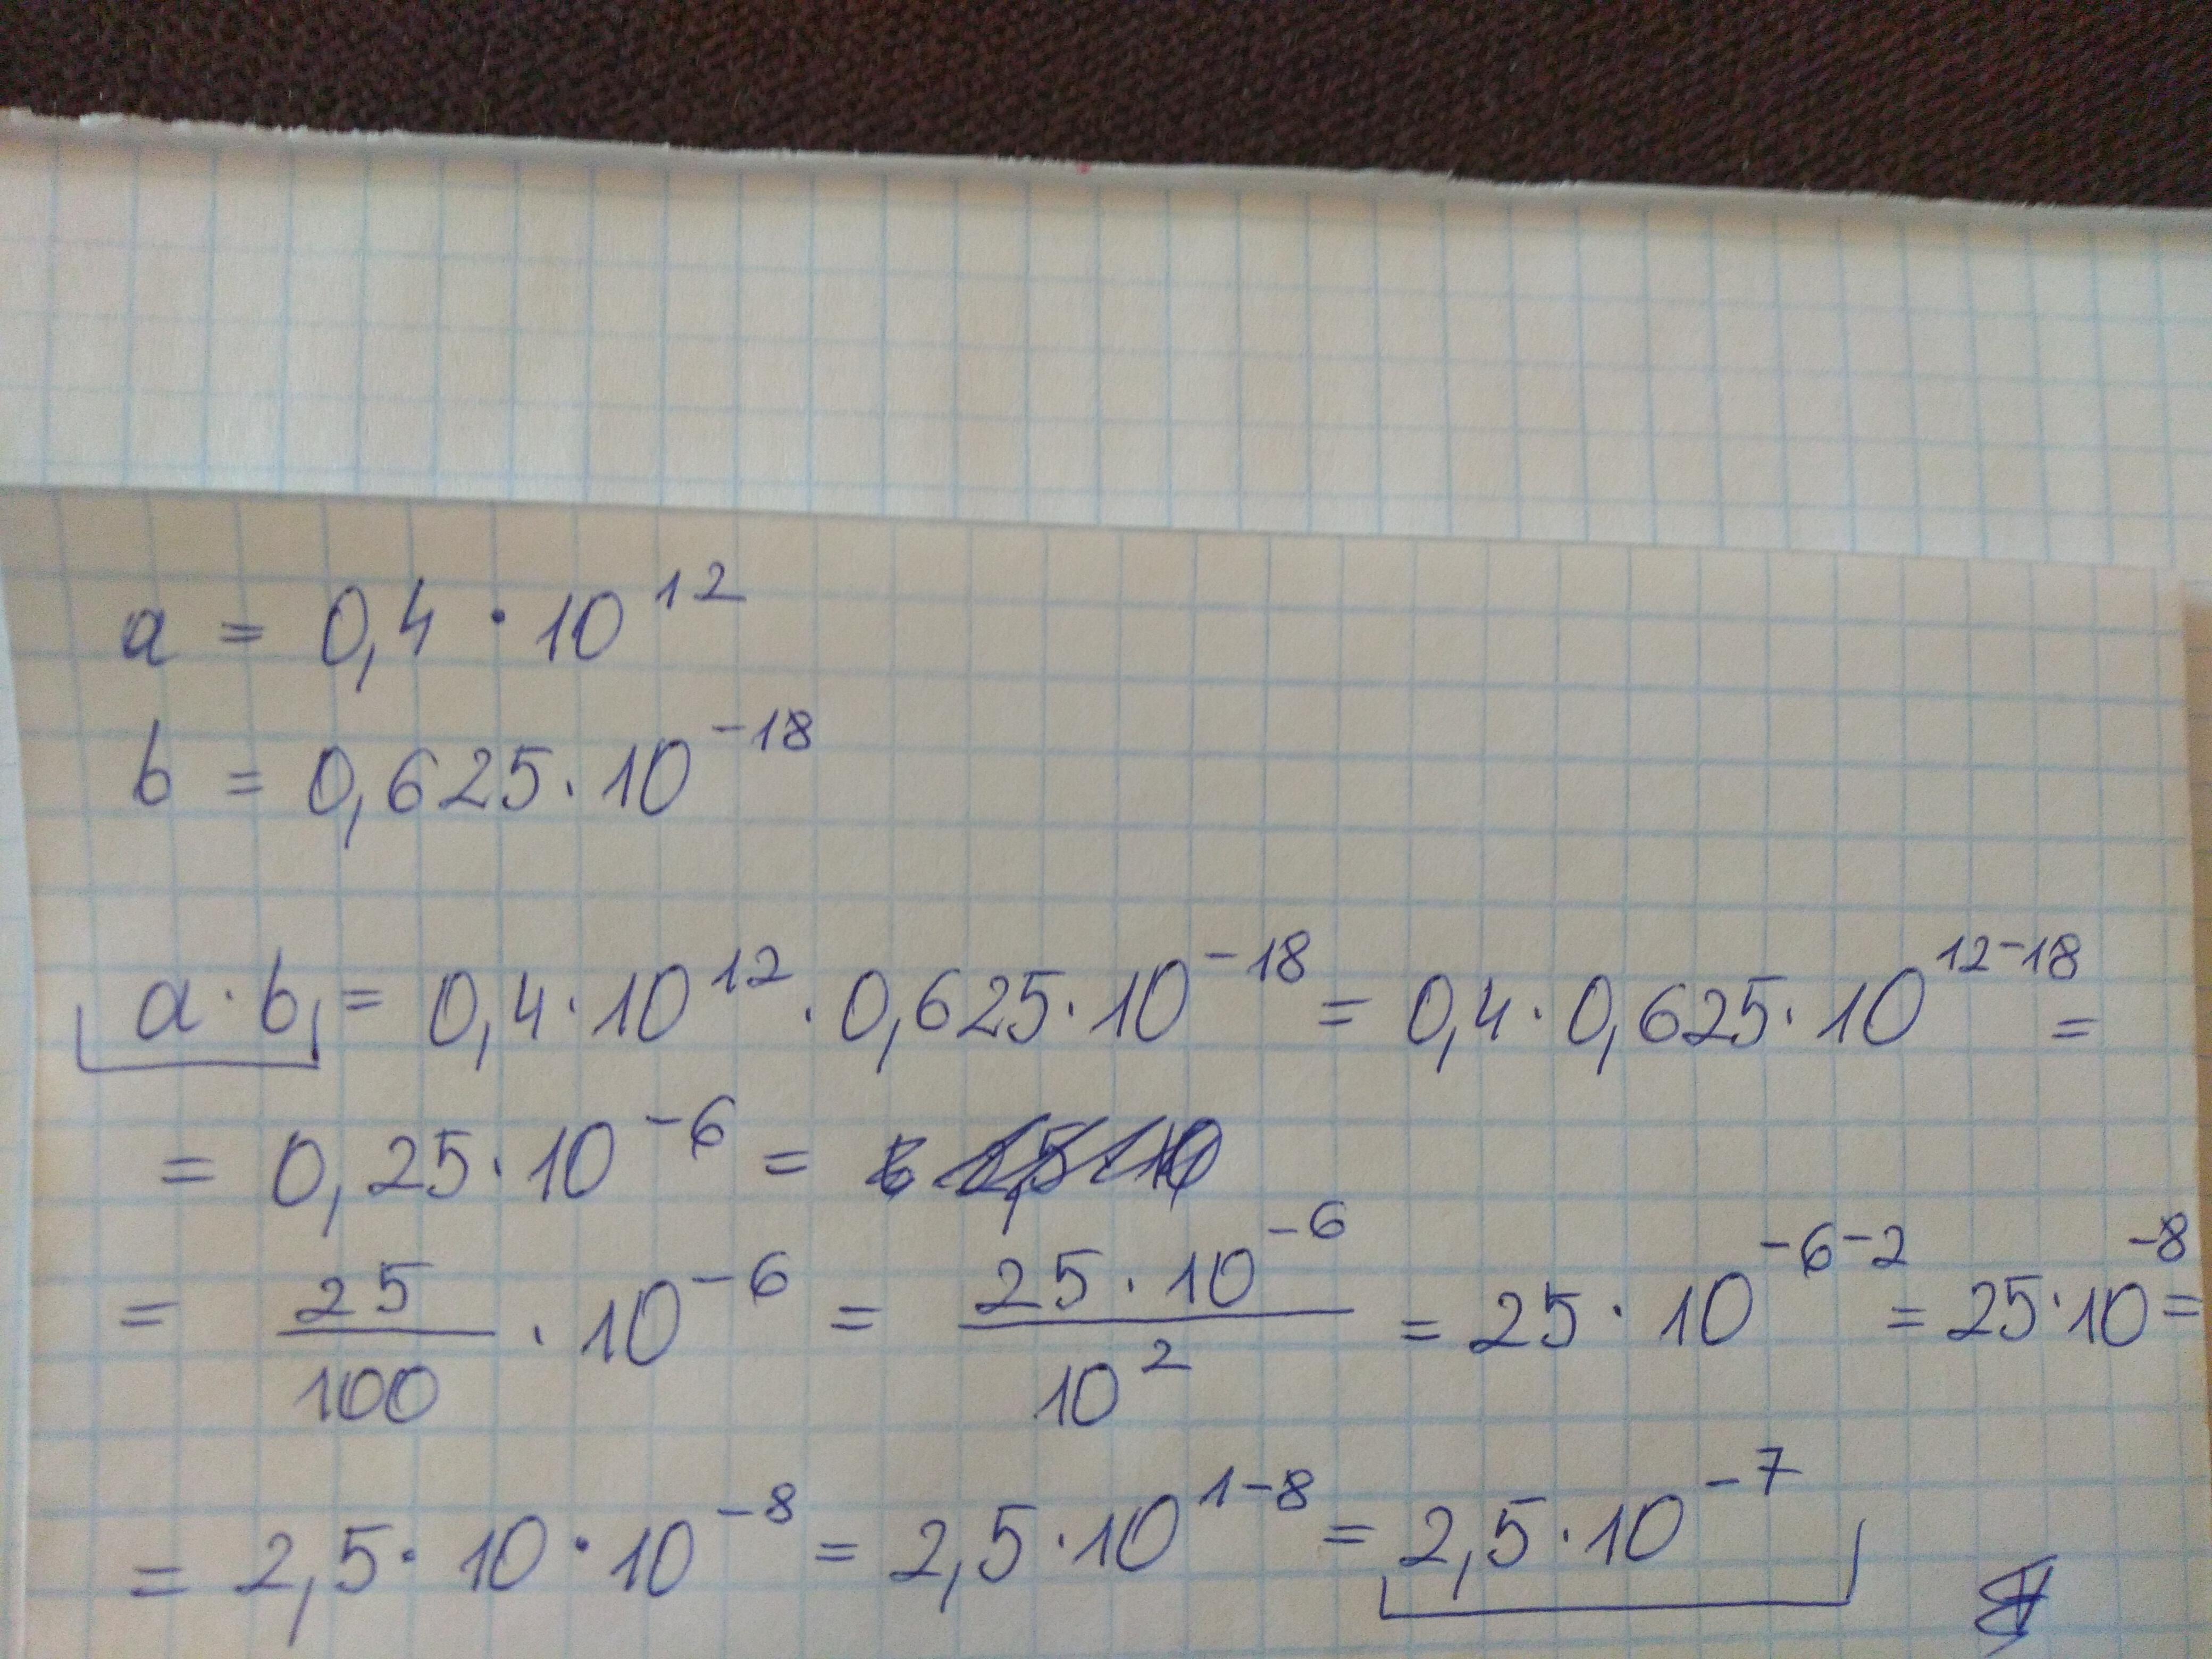 a = 0,4 · 10^12
b = 0,625 · 10^-18
a · b = 0,4 · 10^12 · 0,625 · 10^-18 = 0,4 · 0,625 · 10^12-18 =
= 0,25 · 10^-6 =
= 25/100 · 10^-6 = 25 · 10^-6/10^2 = 25 · 10^-6-2 = 25 · 10^-8 =
= 2,5 · 10 · 10^-8 = 2,5 · 10^1-8 = 2,5 · 10^-7